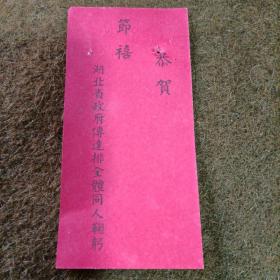 恭賀
節禧
湖北省政府傳達排全體同人鞠躬